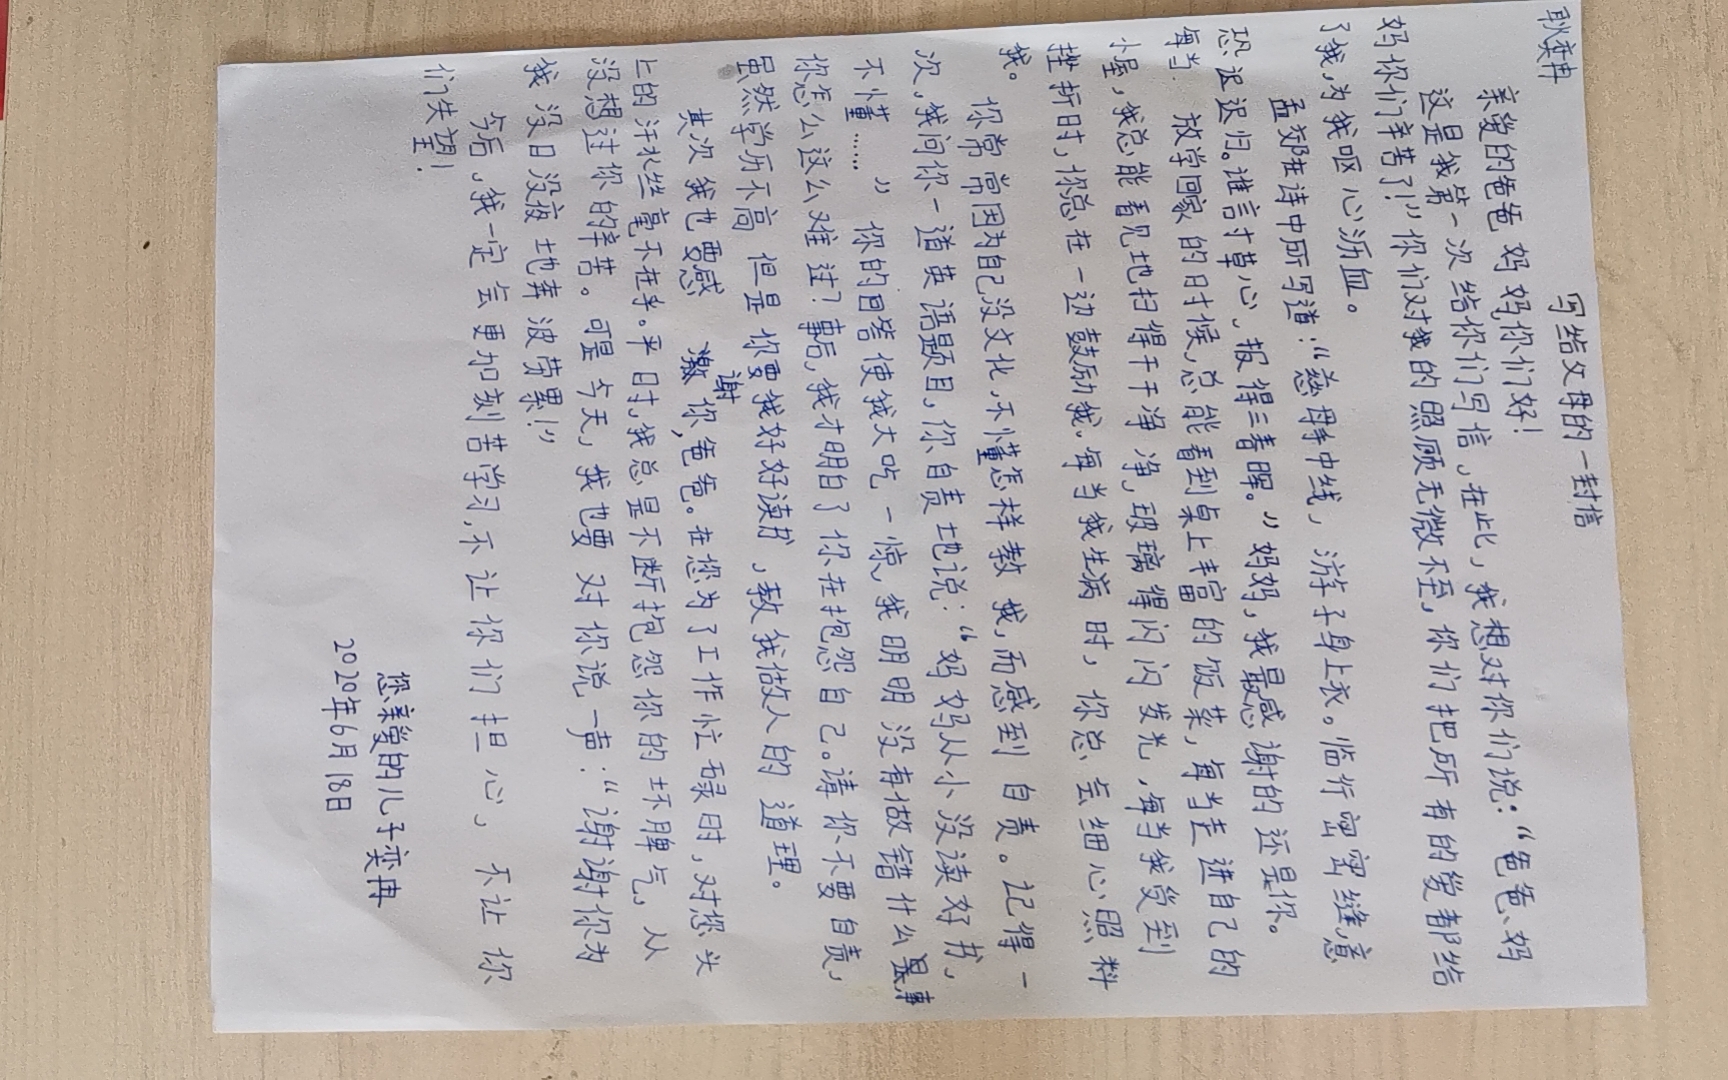 耿奕冉
写给父母的一封信
亲爱的爸爸 妈妈你们好！
这是我第一次给你们写信，在此，我想对你们说：“爸爸、妈
妈你们辛苦了！”你们对我的照顾无微不至，你们把所有的爱都给
了我，为我呕心沥血。
孟郊在诗中所写道：“慈母手中线，游子身上衣。临行密密缝，意
恐迟迟归。谁言寸草心，报得三春晖。”妈妈，我最感谢的还是你。
每当 放学回家的时候，总能看到桌上丰富的饭菜，每当走进自己的
小屋，我总能看见地扫得干干净净，玻璃得闪闪发光，每当我受到
挫折时，你总在一边鼓励我。每当我生病时，你总会细心照料
我。
你常常因为自己没文化，不懂怎样教我，而感到自责。记得一
次，我问你一道英语题目，你自责地说：“妈妈从小没读好书，
不懂……”你的回答使我大吃一惊，我明明没有做错什么事
你怎么这么难过？事后，我才明白了你在抱怨自己。请你不要自责，
虽然学历不高 但是你要我好好读书，教我做人的道理。
其次我也要感 谢你，爸爸。在您为了工作忙碌时，对您头
上的汗水丝毫不在乎。平日时，我总是不断抱怨你的坏脾气，从
没想过你的辛苦。可是今天，我也要对你说一声：“谢谢你为
我没日没夜地奔波劳累！”
今后，我一定会更加刻苦学习，不让你们担心，不让你
们失望！
您亲爱的儿子奕冉
2020年6月18日